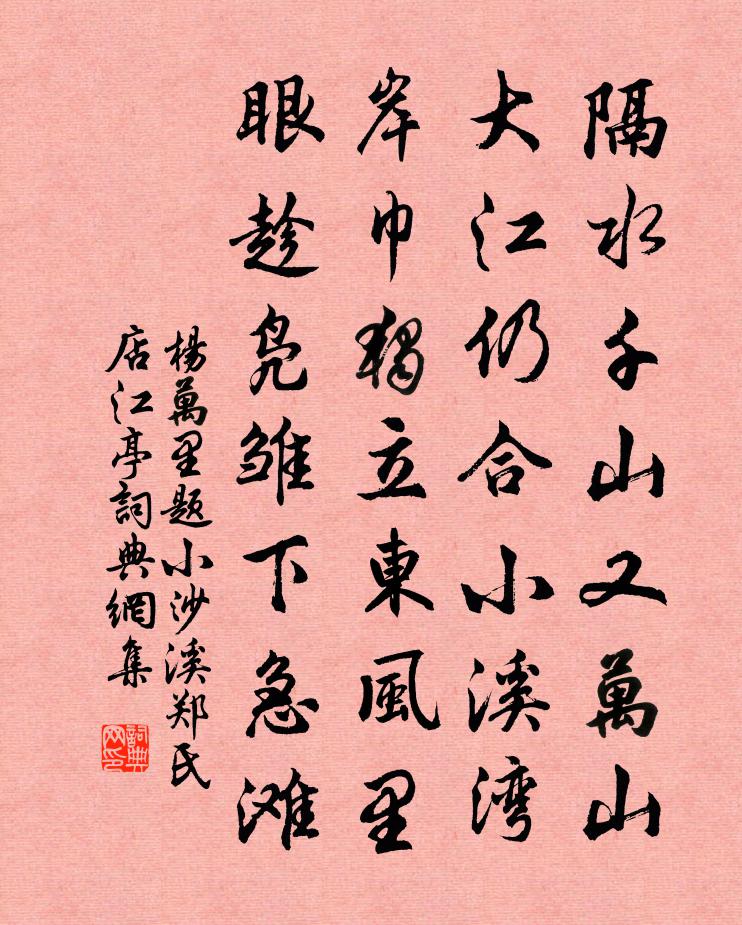 隔水千山又萬山
大江仍合小溪湾
岸巾獨立東風里
眼趁凫雏下急滩
楊萬里题小沙溪郑氏
店江亭詞典網集
詞典
网印